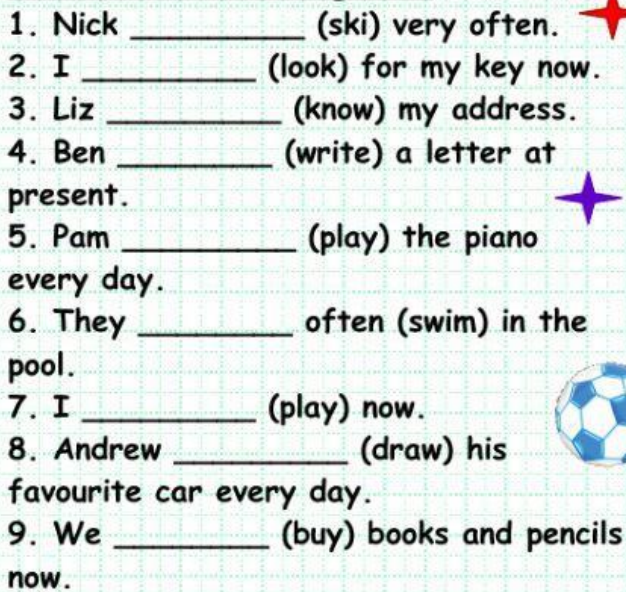 1. Nick ___________ (ski) very often.
2. I ___________ (look) for my key now.
3. Liz ___________ (know) my address.
4. Ben __________ (write) a letter at
present.
5. Pam ___________ (play) the piano
every day.
6. They __________ often (swim) in the
pool.
7. I ___________ (play) now.
8. Andrew ___________ (draw) his
favourite car every day.
9. We __________ (buy) books and pencils
now.